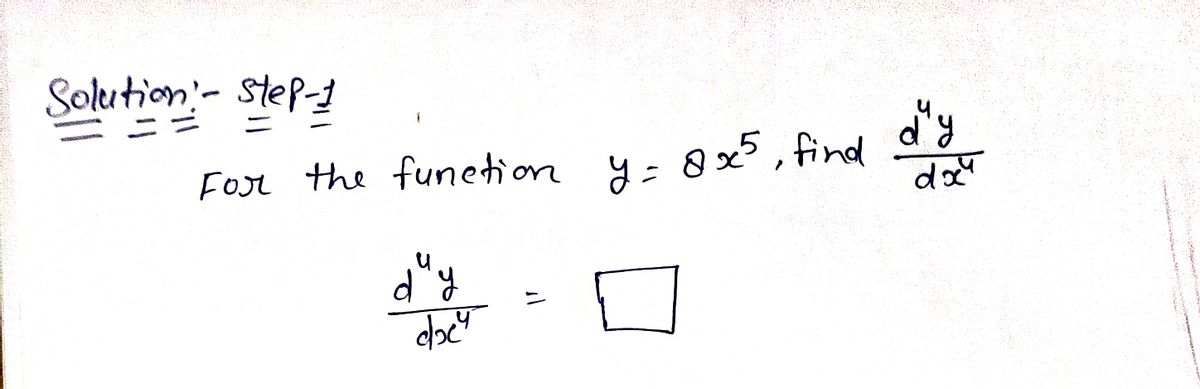 Solution:- Step-1
For the function y = 8x⁵, find d⁴y/dx⁴
d⁴y/dx⁴ = □